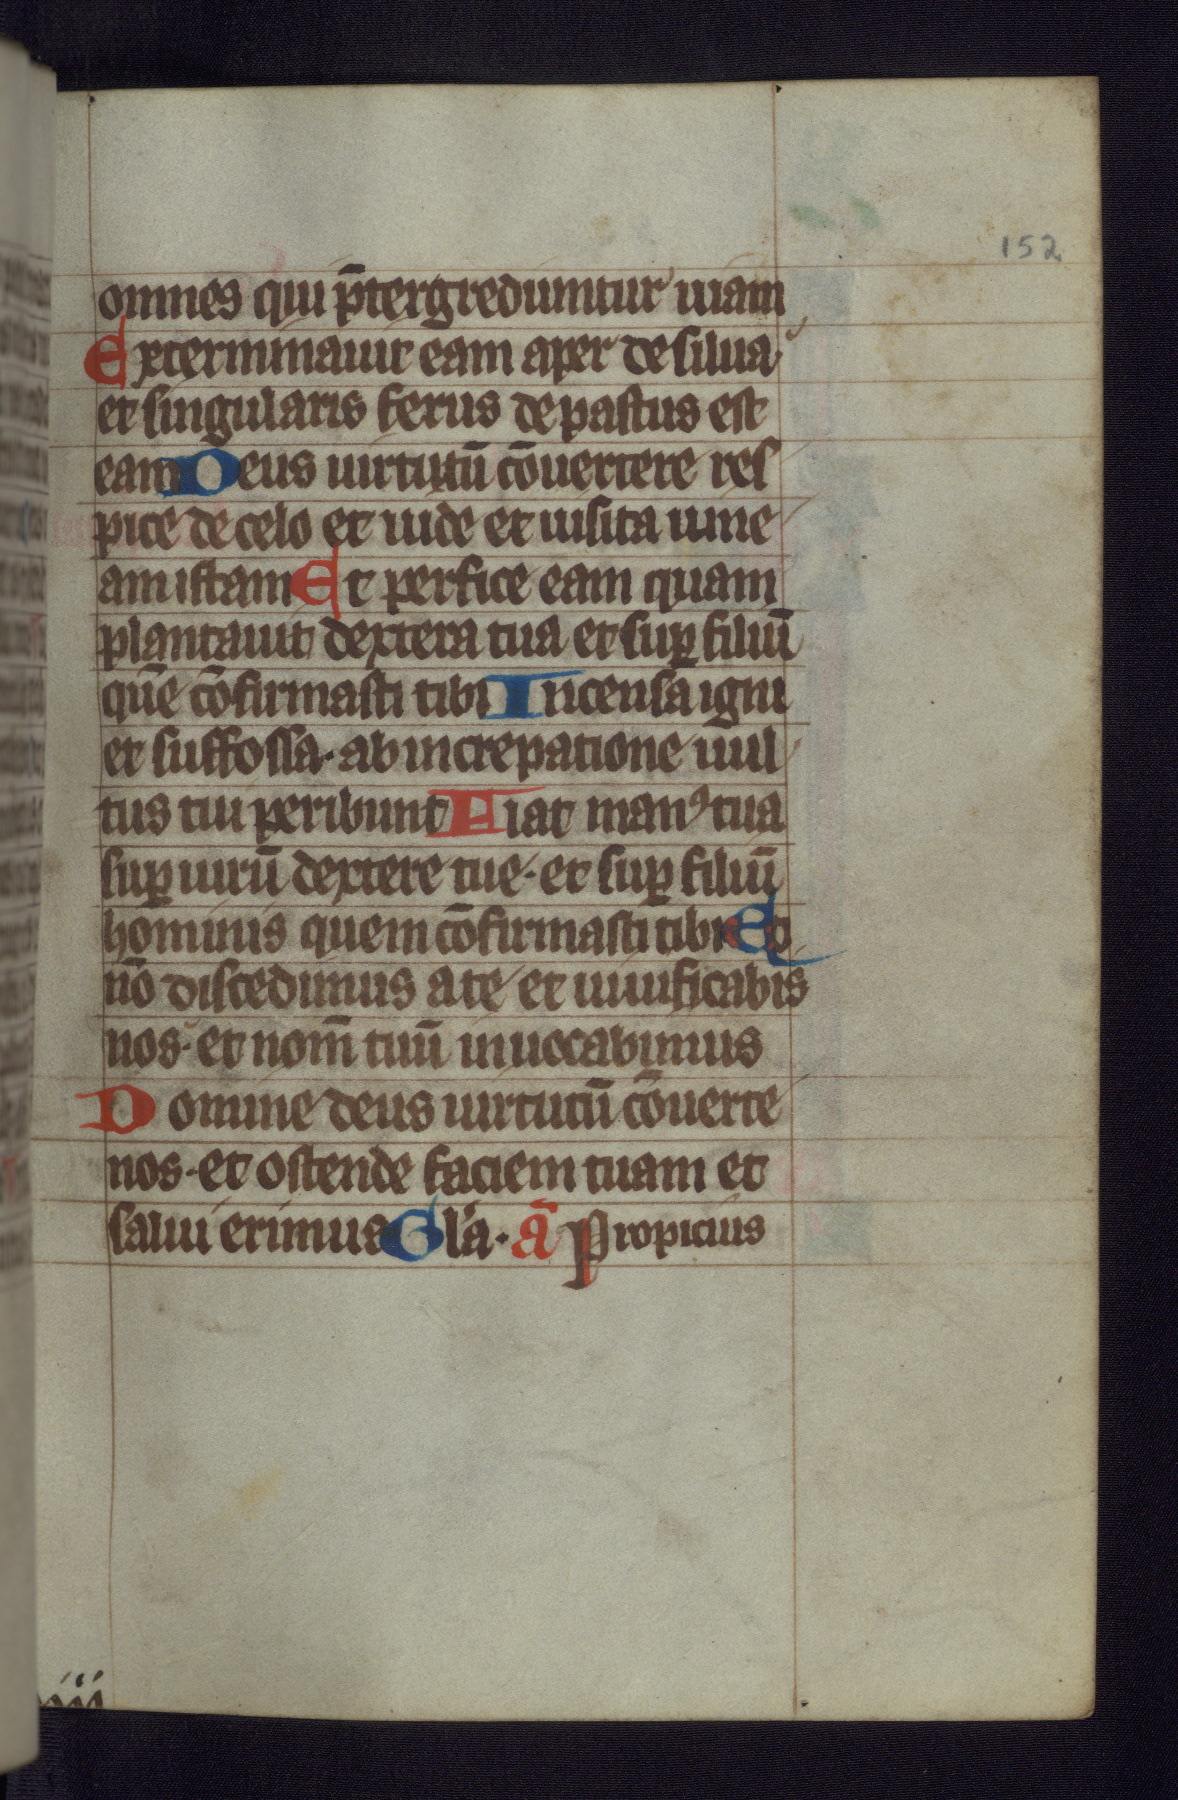 152
omnes qui p̄tergrediuntur uiam
Exterminauit eam aper de silua
et singularis ferus depastus est
eam Deus uirtutū cōuertere res
pice de celo et uide et uisita uine
am istam Et perfice eam quam
plantauit dextera tua et sup̱ filiū
quē cōfirmasti tibi Incensa igni
et suffossa · ab increpatione uul
tus tui peribunt Fiat manꝰ tua
sup̱ uirū dextere tue · et sup̱ filiū
hominis quem cōfirmasti tibi Et
nō discedimus a te et uiuificabis
nos · et nom̄ tuū inuocabimus
Domine deus uirtutū cōuerte
nos · et ostende faciem tuam et
salui erimus Gl'a · ā Propicius